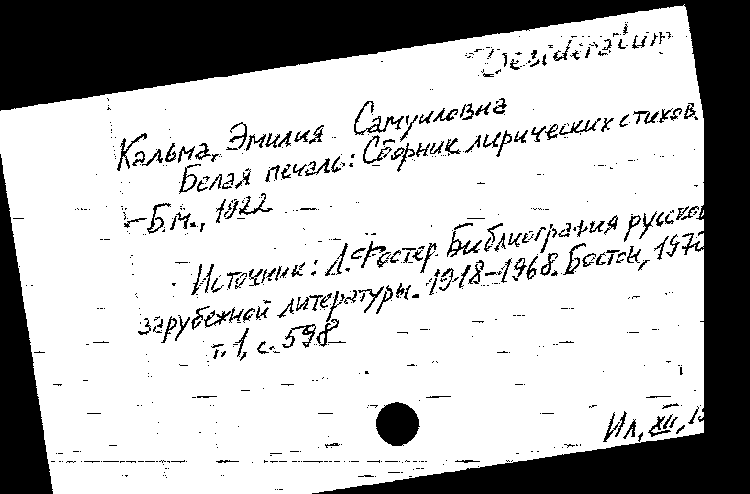 Desideratum
Кальма, Эмилия Самуиловна
Белая печаль: Сборник лирических стихов.
– Б.м., 1922
Источник: Л. Фостер. Библиография русской
зарубежной литературы. 1918–1968. Бостон, 197
т. 1, с. 598
Ил, XII, 1